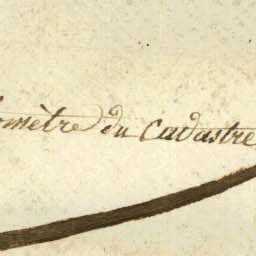 omètre du Cadastre